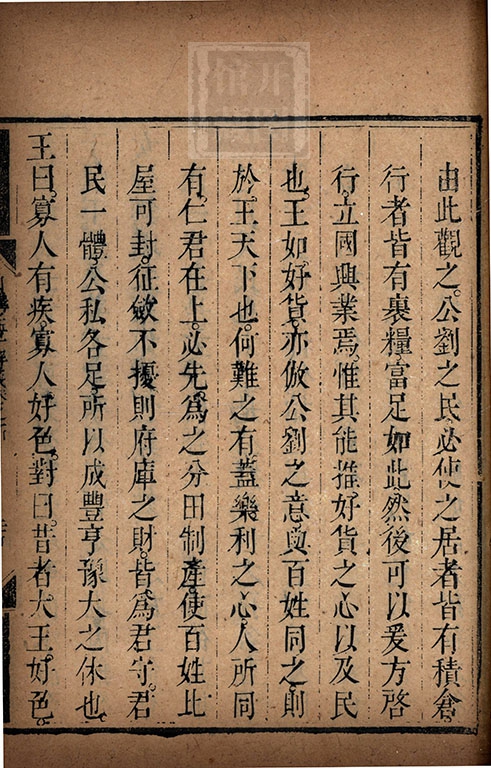 由此觀之。公劉之民必使之居者皆有積倉。
行者皆有裹糧。富足如此。然後可以爰方啓
行。立國興業焉。惟其能推好貨之心以及民
也。王如好貨。亦倣公劉之意與百姓同之。則
於王天下也。何難之有。蓋樂利之心。人所同
有。仁君在上。必先爲之分田制產。使百姓比
屋可封。征斂不擾。則府庫之財。皆爲君守。君
民一體。公私各足。所以成豐亨豫大之休也。
王曰。寡人有疾。寡人好色。對曰。昔者大王好色。